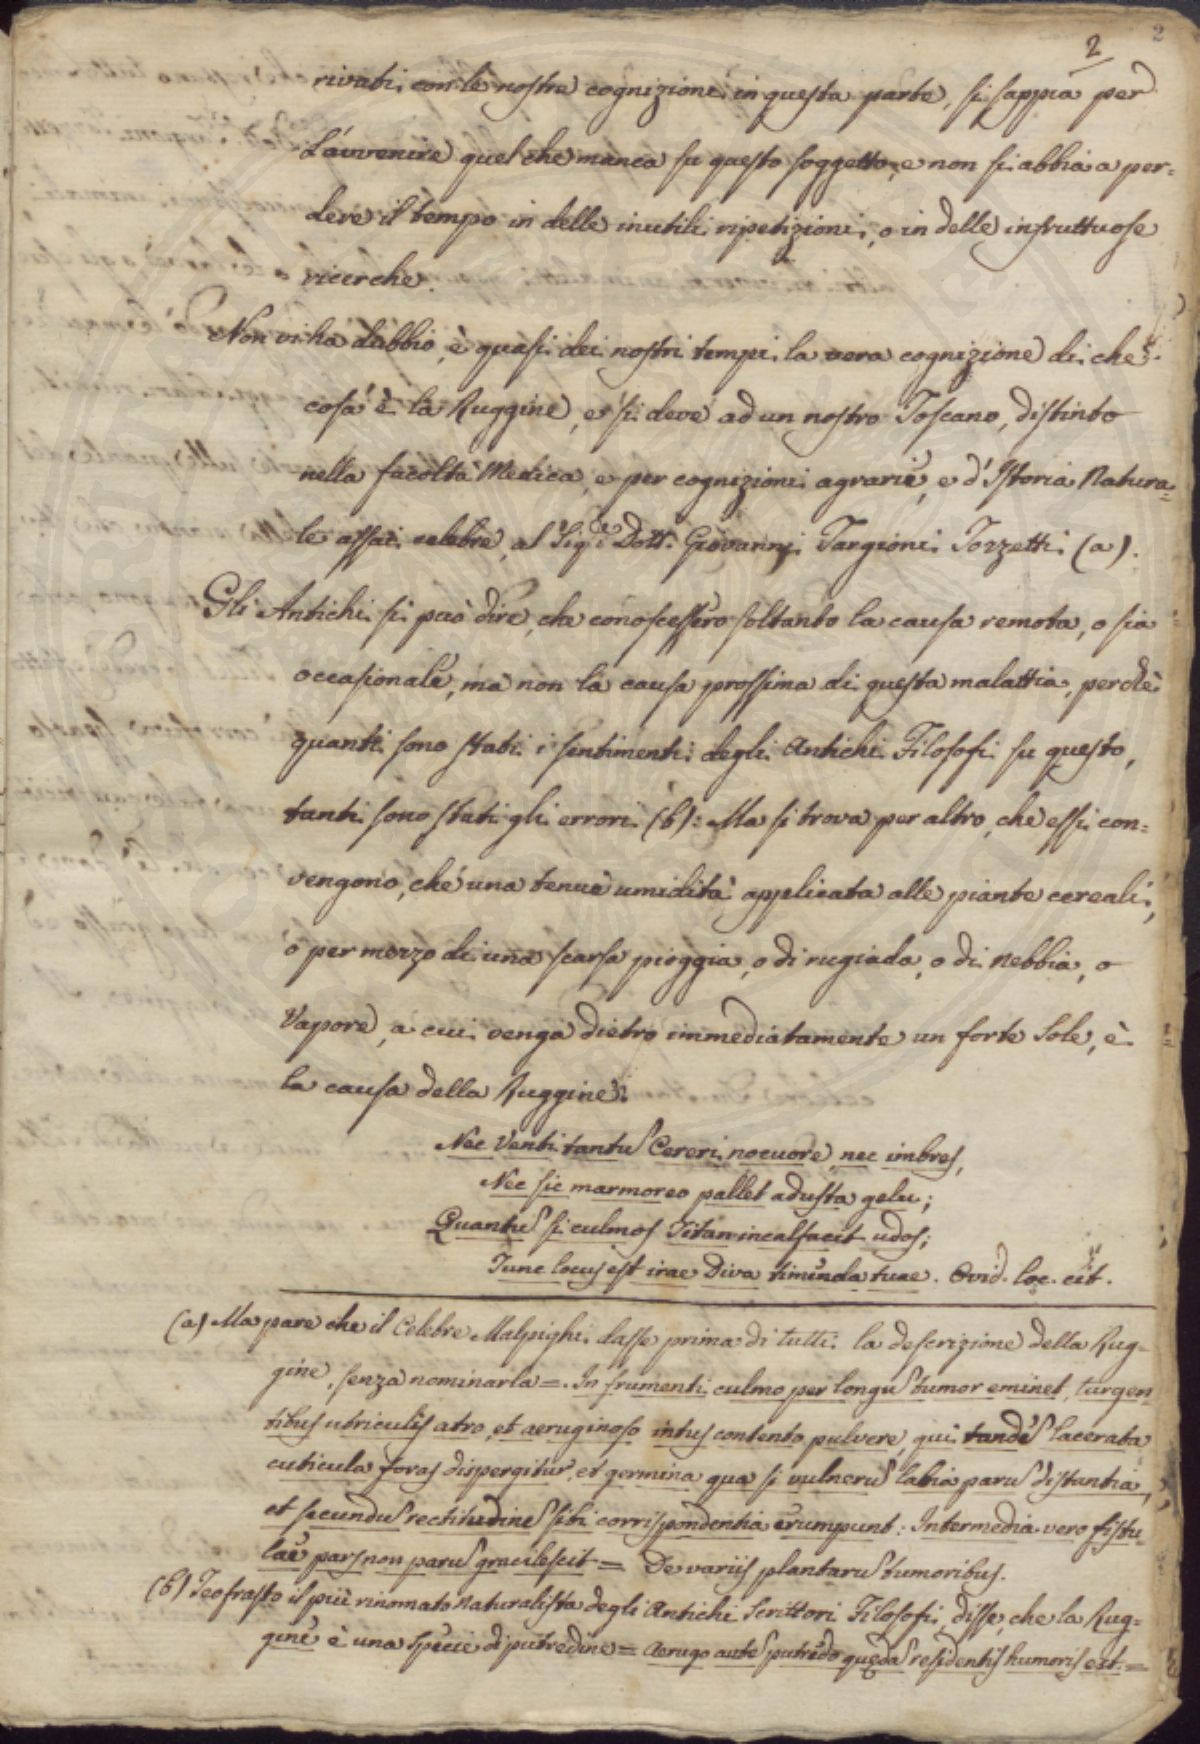 2
2
rivati con le nostre cognizioni in questa parte, si sappia per
L'avvenire quel che manca su questo soggetto, e non si abbia a per=
dere il tempo in delle inutili ripetizioni, o in delle infruttuose
ricerche.
Non vi ha dubbio, è quasi dei nostri tempi la vera cognizione di che
cosa è la Ruggine, e si deve ad un nostro Toscano, distinto
nella facoltà Medica, e per cognizioni agrarie, e d'Istoria Natura=
le assai celebre, al Sig.e Dott. Giovanni Targioni Tozzetti (a).
Gli Antichi si può dire, che conoscessero soltanto la causa remota, o sia
occasionale, ma non la causa prossima di questa malattia, perchè
quanti sono stati i sentimenti degli Antichi Filosofi su questo,
tanti sono stati gli errori (b): Ma si trova per altro, che essi con=
vengono, che una tenue umidità applicata alle piante cereali,
o per mezzo di una scarsa pioggia, o di rugiada, o di Nebbia, o
Vapore, a cui venga dietro immediatamente un forte Sole, è
la causa della Ruggine:
Nec Venti tantũ Cereri nocuere, nec imbres,
Nec sic marmoreo pallet adusta gelu;
Quantũ si culmos Titan incalfacit udos;
Tunc locus est irae Diva timenda tuae. Ovid. loc. cit.
(a) Ma pare che il Celebre Malpighi dasse prima di tutti la descrizione della Rug=
gine, senza nominarla =. In frumenti culmo per longũ tumor eminet, turgen=
tibus utriculis atro, et aeruginoso intus contento pulvere, qui tandẽ lacerata
cuticula foras dispergitur, et germina qua si vulnerũ labia parũ distantia,
et secundũ rectitudinẽ sibi corrispondentia erumpunt: Intermedia vero fistu=
lae pars non parũ gracilescit = De variis plantarũ tumoribus.
(b) Teofrasto il più rinomato Naturalista degli Antichi Scrittori Filosofi, disse, che la Rug=
gine è una specie di putredine = aerugo autẽ putredo quędã residentis humoris est =